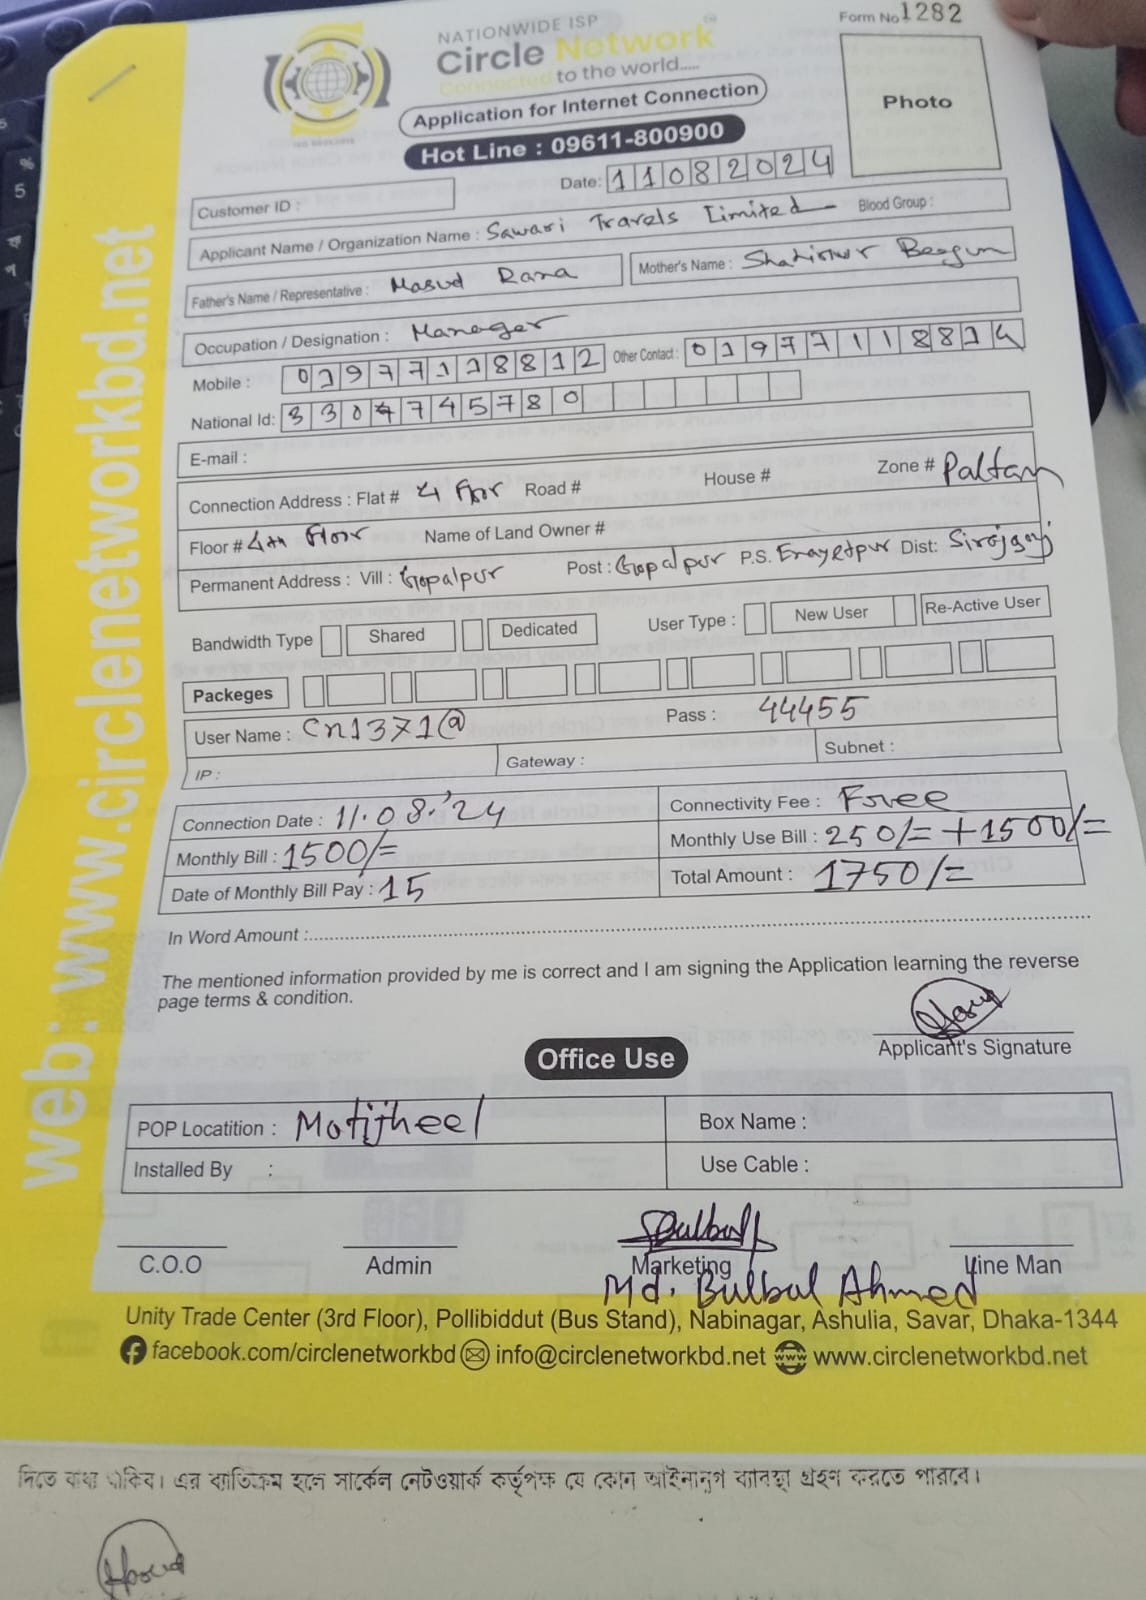 Form No 1282
NATIONWIDE ISP
Circle Network
Connected to the world.....
Application for Internet Connection
Hot Line : 09611-800900
Photo
Date: 11082024
Customer ID :
Applicant Name / Organization Name : Sawari Travels Limited Blood Group :
Father's Name / Representative : Masud Rana Mother's Name : Begum
Occupation / Designation : Manager
Mobile : 01977118812 Other Contact : 01977118814
National Id: 3304745780
E-mail :
Connection Address : Flat # 4 Floor Road # House # Zone # Paltan
Floor # 4th Floor Name of Land Owner #
Permanent Address : Vill : Gopalpur Post : Gopalpur P.S. Enayetpur Dist: Sirajganj
Bandwidth Type Shared Dedicated User Type : New User Re-Active User
Packeges
User Name : Cn1371@ Pass : 44455
IP : Gateway : Subnet :
Connection Date : 11.08.'24 Connectivity Fee : Free
Monthly Bill : 1500/= Monthly Use Bill : 250/= + 1500/=
Date of Monthly Bill Pay : 15 Total Amount : 1750/=
In Word Amount :
The mentioned information provided by me is correct and I am signing the Application learning the reverse
page terms & condition.
Applicant's Signature
Office Use
POP Locatition : Motijheel Box Name :
Installed By : Use Cable :
C.O.O Admin Marketing Line Man
Md. Bulbul Ahmed
Unity Trade Center (3rd Floor), Pollibiddut (Bus Stand), Nabinagar, Ashulia, Savar, Dhaka-1344
facebook.com/circlenetworkbd info@circlenetworkbd.net www.circlenetworkbd.net
web: www.circlenetworkbd.net
দিতে বাধ্য থাকিব। এর ব্যতিক্রম হলে সার্কেল নেটওয়ার্ক কর্তৃপক্ষ যে কোন আইনানুগ ব্যবস্থা গ্রহণ করতে পারবে।